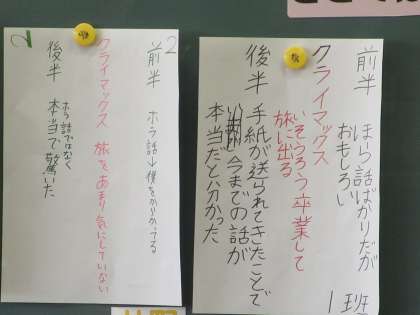 前半 ほら話ばかりだが
おもしろい
クライマックス
いそうろう卒業して
旅に出る
後半 手紙が送られてきたことで
今までの話が
本当だと分かった
1班
2
前半 ホラ話↓僕をからかってる
クライマックス 旅をあまり気にしていない
後半 ホラ話ではなく
本当で驚いた
2